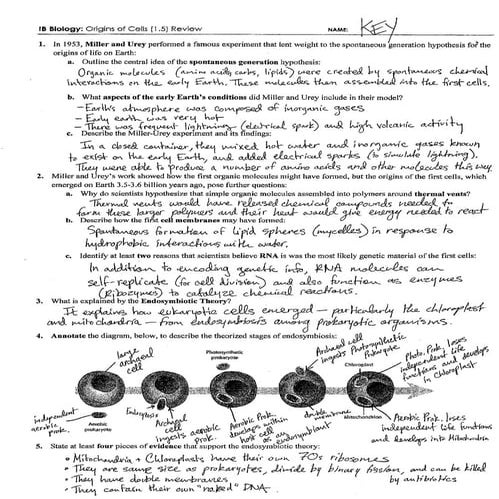 IB Biology: Origins of Cells (1.5) Review NAME: KEY
1. In 1953, Miller and Urey performed a famous experiment that lent weight to the spontaneous generation hypothesis for the
origins of life on Earth:
a. Outline the central idea of the spontaneous generation hypothesis:
Organic molecules (amino acids, carbs, lipids) were created by spontaneous chemical
interactions on the early Earth. These molecules then assembled into the first cells.
b. What aspects of the early Earth's conditions did Miller and Urey include in their model?
- Earth's atmosphere was composed of inorganic gases
- Early earth was very hot
- There was frequent lightning (electrical spark) and high volcanic activity
c. Describe the Miller-Urey experiment and its findings:
In a closed container, they mixed hot water and inorganic gases known
to exist on the early Earth, and added electrical sparks (to simulate lightning).
They were able to produce a number of amino acids and other molecules this way.
2. Miller and Urey's work showed how the first organic molecules might have formed, but the origins of the first cells, which
emerged on Earth 3.5-3.6 billion years ago, pose further questions:
a. Why do scientists hypothesize that simple organic molecules assembled into polymers around thermal vents?
Thermal vents would have released chemical compounds needed to
form these larger polymers and their heat would give energy needed to react
b. Describe how the first cell membranes may have formed:
Spontaneous formation of lipid spheres (mycelles) in response to
hydrophobic interactions with water.
c. Identify at least two reasons that scientists believe RNA is was the most likely genetic material of the first cells:
In addition to encoding genetic info, RNA molecules can
self-replicate (for cell division) and also function as enzymes
(ribozymes) to catalyze chemical reactions.
3. What is explained by the Endosymbiotic Theory?
It explains how eukaryotic cells emerged - particularly the chloroplast
and mitochondria - from endosymbiosis among prokaryotic organisms.
4. Annotate the diagram, below, to describe the theorized stages of endosymbiosis:
large archaeal cell
Photosynthetic prokaryote
Archaeal cell ingests Photosynthetic Prokaryote
Chloroplast
Photo. Prok. loses independent life functions and develops into Chloroplast
independent aerobic prok.
Aerobic prokaryote
Endocytosis
Archaeal cell ingests aerobic prok.
Aerobic Prok. develops within host cell as an endosymbiont
double membrane
Mitochondrion
Aerobic Prok. loses independent life functions and develops into Mitochondria
5. State at least four pieces of evidence that support the endosymbiotic theory:
• Mitochondria + Chloroplasts have their own 70s ribosomes
• They are same size as prokaryotes, divide by binary fission, and can be killed by antibiotics
• They have double membranes
• They contain their own "naked" DNA.